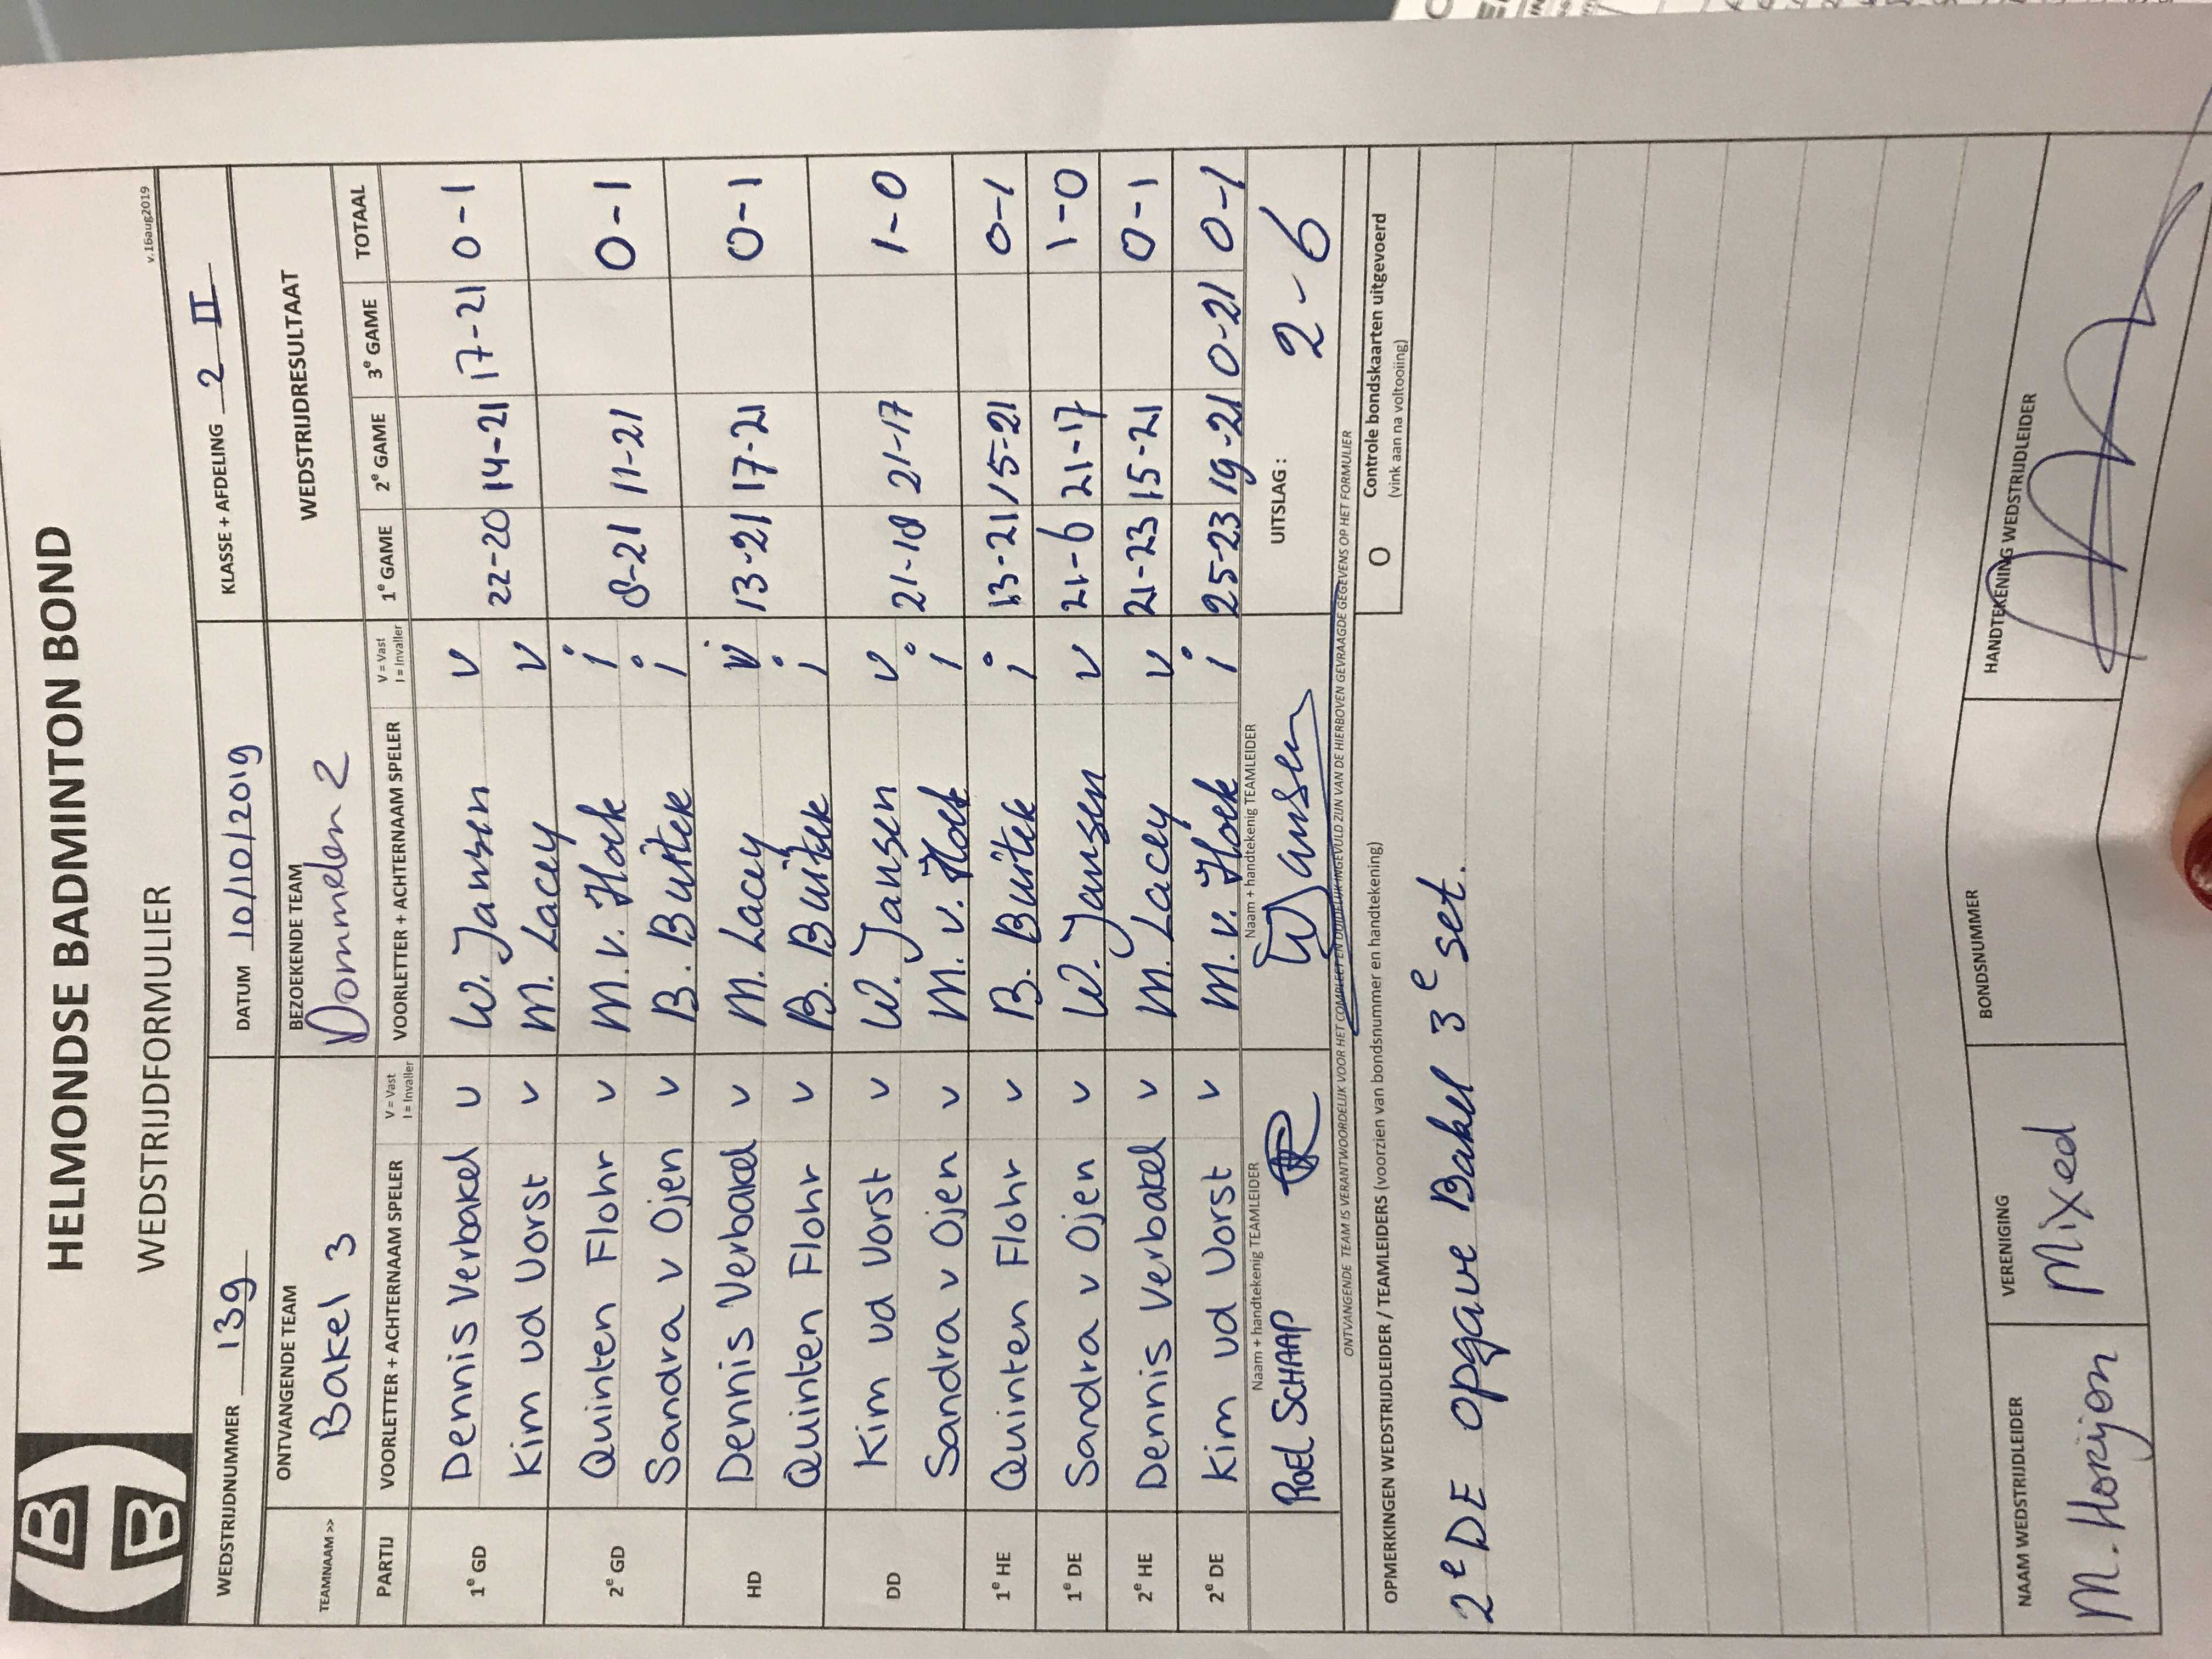 HELMONDSE BADMINTON BOND
WEDSTRIJDFORMULIER
v.16aug2019
WEDSTRIJDNUMMER 139 DATUM 10/10/2019 KLASSE + AFDELING 2 II
TEAMNAAM >> ONTVANGENDE TEAM BEZOEKENDE TEAM WEDSTRIJDRESULTAAT
Bakel 3 Dommelen 2
PARTIJ VOORLETTER + ACHTERNAAM SPELER V = Vast I = Invaller VOORLETTER + ACHTERNAAM SPELER V = Vast I = Invaller 1e GAME 2e GAME 3e GAME TOTAAL
1e GD Dennis Verbakel v W. Jansen v 22-20 14-21 17-21 0-1
Kim vd Vorst v M. Lacey v
2e GD Quinten Flohr v M. v. Hoek i 8-21 11-21 0-1
Sandra v Ojen v B. Buitek i
HD Dennis Verbakel v M. Lacey v 13-21 17-21 0-1
Quinten Flohr v B. Buitek i
DD Kim vd Vorst v W. Jansen v 21-18 21-17 1-0
Sandra v Ojen v M. v. Hoek i
1e HE Quinten Flohr v B. Buitek i 13-21 15-21 0-1
1e DE Sandra v Ojen v W. Jansen v 21-6 21-17 1-0
2e HE Dennis Verbakel v M. Lacey v 21-23 15-21 0-1
2e DE Kim vd Vorst v M. v. Hoek i 25-23 19-21 0-21 0-1
Naam + handtekenig TEAMLEIDER Naam + handtekenig TEAMLEIDER
ROEL SCHAAP WJansen UITSLAG : 2-6
ONTVANGENDE TEAM IS VERANTWOORDELIJK VOOR HET COMPLEET EN DUIDELIJK INGEVULD ZIJN VAN DE HIERBOVEN GEVRAAGDE GEGEVENS OP HET FORMULIER
OPMERKINGEN WEDSTRIJDLEIDER / TEAMLEIDERS (voorzien van bondsnummer en handtekening)
O Controle bondskaarten uitgevoerd
(vink aan na voltooiing)
2e DE opgave Bakel 3e set.
NAAM WEDSTRIJDLEIDER VERENIGING BONDSNUMMER HANDTEKENING WEDSTRIJDLEIDER
M. Horijon Mixed